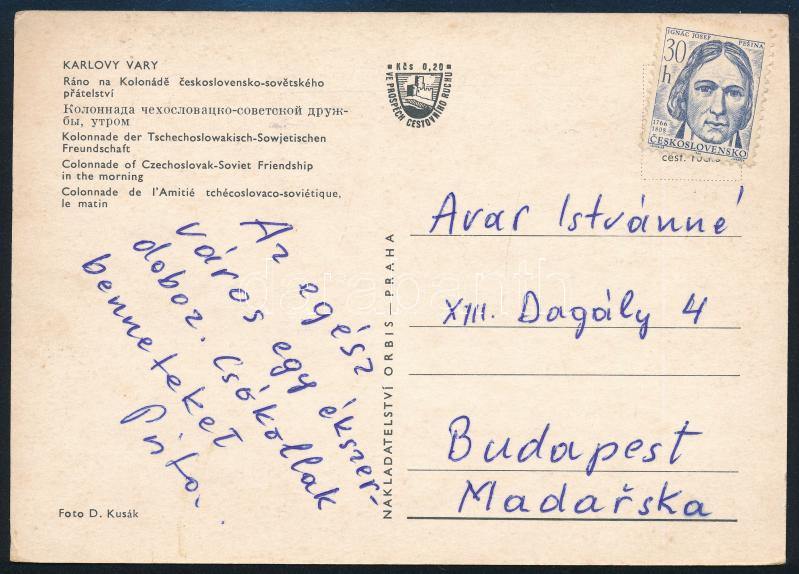 KARLOVY VARY
Ráno na Kolonádě československo-sovětského
přátelství
Колоннада чехословацко-советской друж-
бы, утром
Kolonnade der Tschechoslowakisch-Sowjetischen
Freundschaft
Colonnade of Czechoslovak-Soviet Friendship
in the morning
Colonnade de l'Amitié tchécoslovaco-soviétique,
le matin
Az egész
város egy ékszer-
doboz. Csókollak
benneteket
Foto D. Kusák
NAKLADATELSTVÍ ORBIS — PRAHA
Kčs 0,20
VE PROSPĚCH CESTOVNÍHO RUCHU
IGNÁC JOSEF PEŠINA
30
h
1766
1808
ČESKOSLOVENSKO
cest.
Avar Istvánné
XIII. Dagály 4
Budapest
Madařska
darabanth